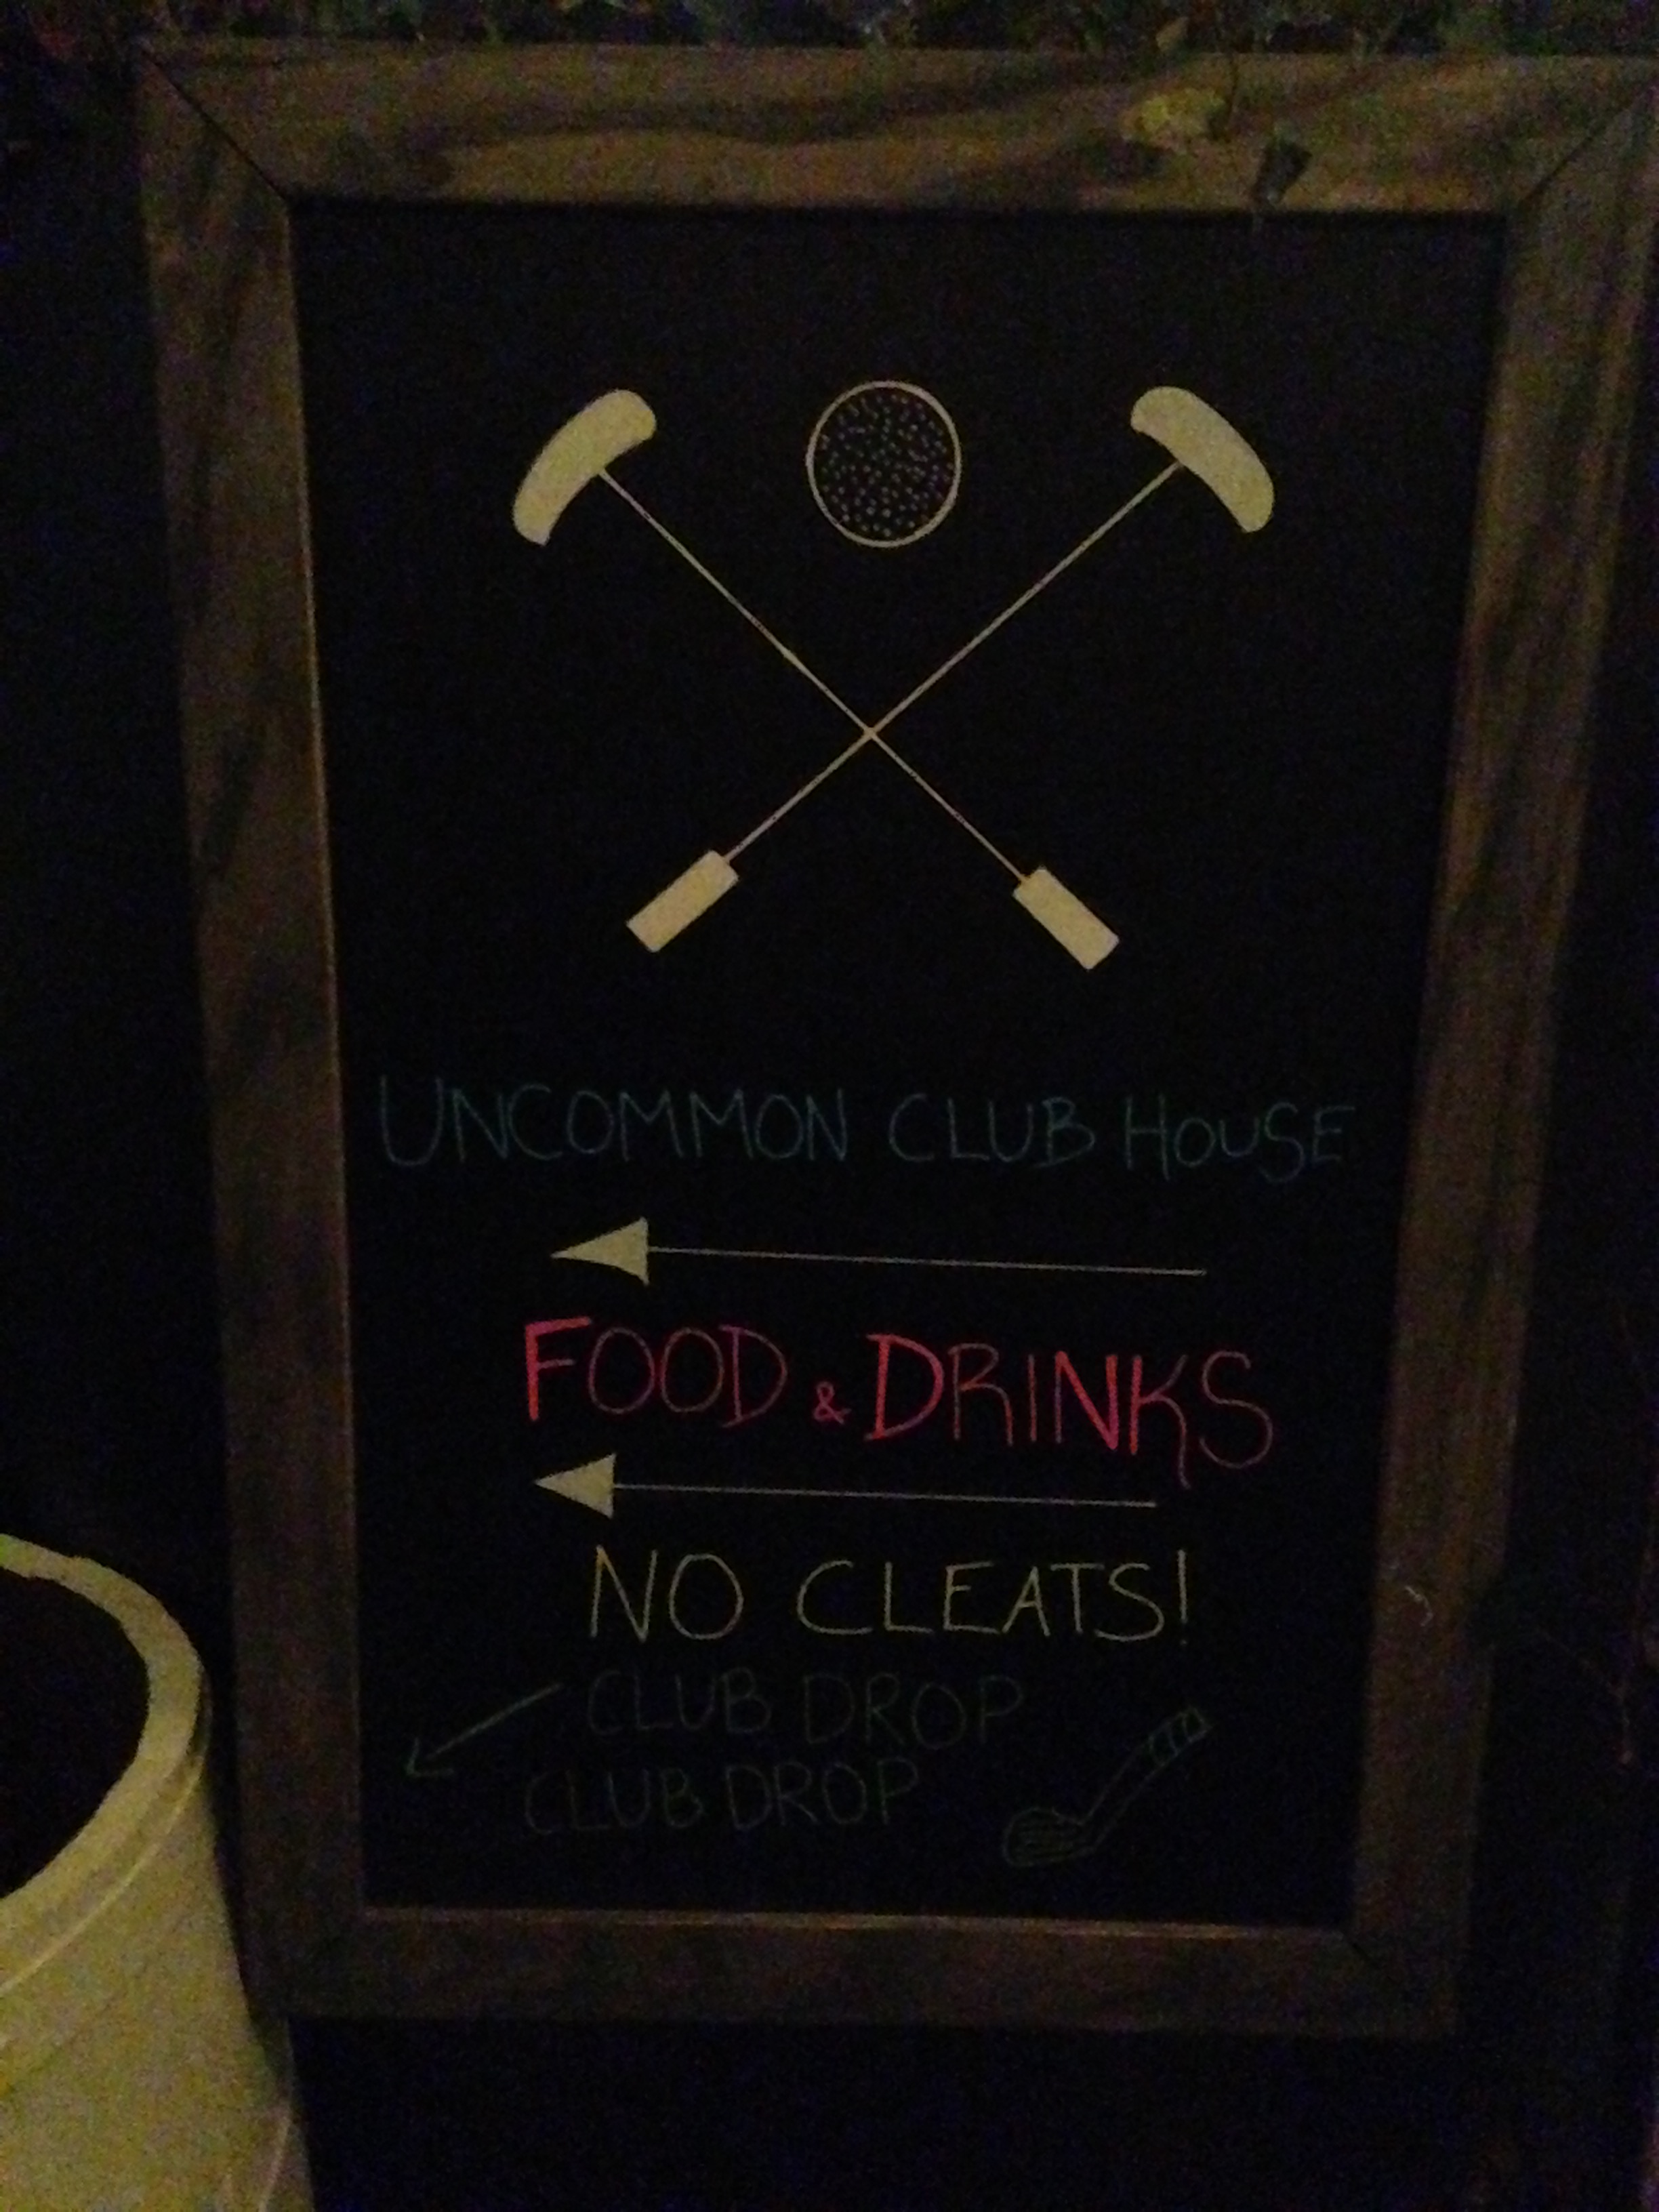 UNCOMMON CLUB HOUSE
FOOD & DRINKS
NO CLEATS!
CLUB DROP
CLUB DROP